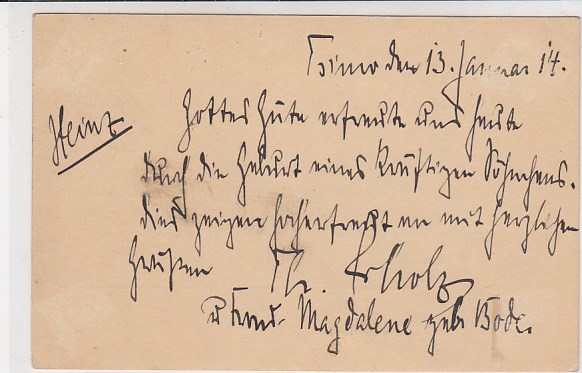 Tsimo den 13. Januar 14.
Heinz
Gottes Güte erfreute uns heute
durch die Geburt eines kräftigen Söhnchens.
Dies zeigen hocherfreut an mit herzlichen
Grüßen Th. Scholz
u Frau Magdalene geb Bode.